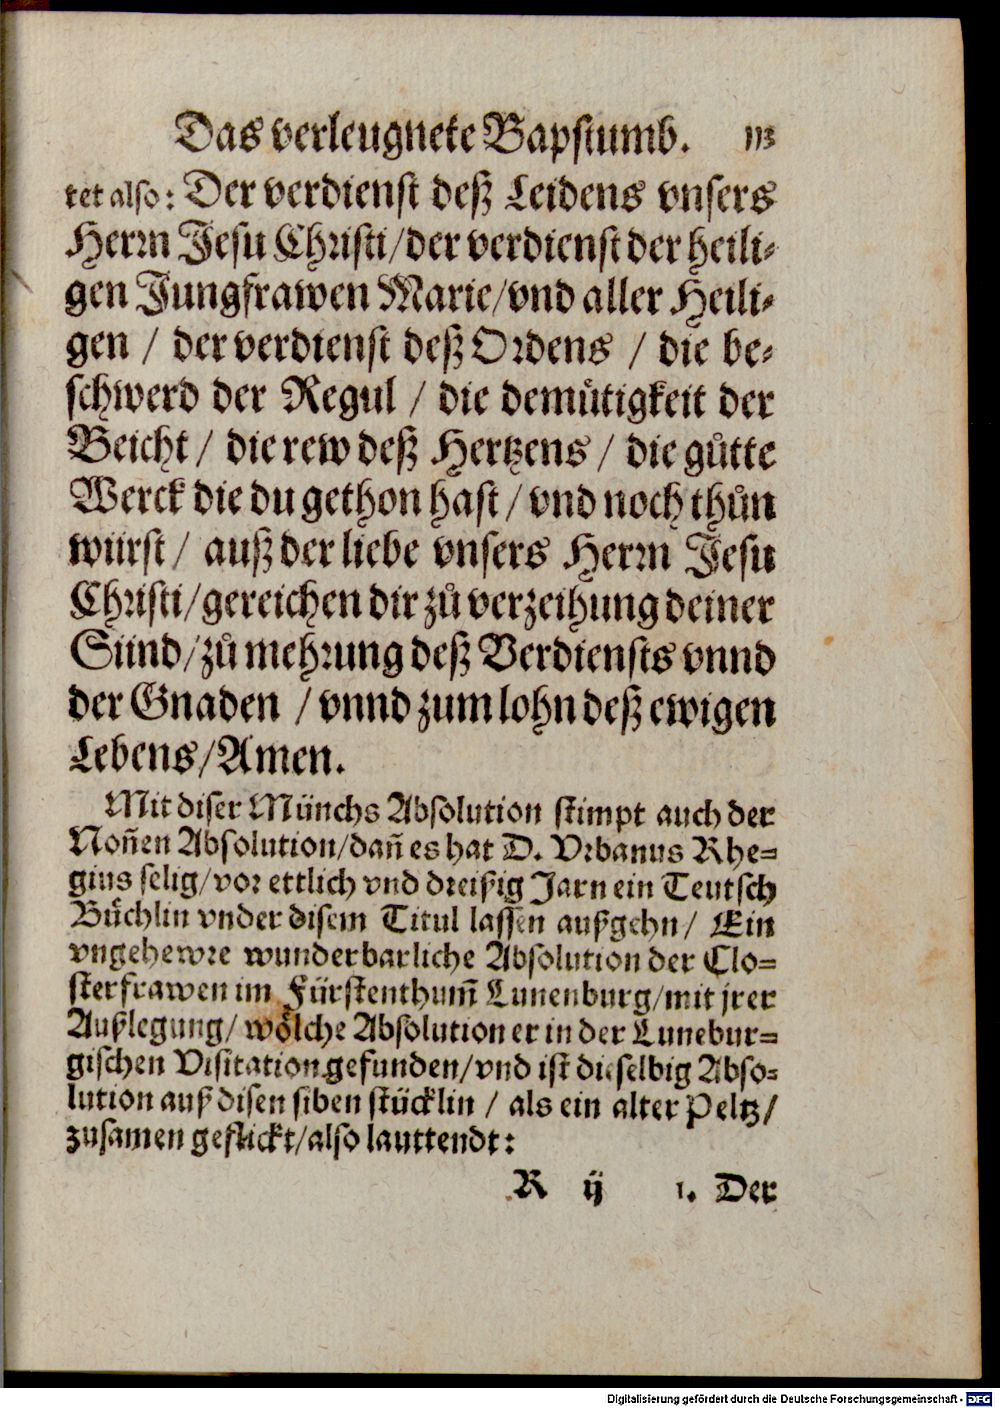 Das verleugnete Bapstumb. 113
tet also: Der verdienst deß Leidens vnsers
Herrn Jesu Christi/der verdienst der heili-
gen Jungfrawen Marie/vnd aller Heili-
gen / der verdienst deß Ordens / die be-
schwerd der Regul / die demuͤtigkeit der
Beicht / die rew deß Hertzens / die guͦtte
Werck die du gethon hast / vnd noch thuͦn
würst / auß der liebe vnsers Herrn Jesu
Christi/gereichen dir zuͦ verzeihung deiner
Sünd/zuͦ mehrung deß Verdiensts vnnd
der Gnaden / vnnd zum lohn deß ewigen
Lebens/Amen.
Mit diser Münchs Absolution stimpt auch der
Noñen Absolution/dañ es hat D. Vrbanus Rhe=
gius selig/vor ettlich vnd dreißig Jarn ein Teutsch
Buͤchlin vnder disem Titul lassen außgehn/ Ein
vngehewre wunderbarliche Absolution der Clo=
sterfrawen im Fürstenthum̃ Lunenburg/mit jrer
Außlegung/ woͤlche Absolution er in der Lunebur=
gischen Visitation gefunden/vnd ist dieselbig Abso=
lution auß disen siben stücklin / als ein alter Peltz/
zusamen geflickt/also lauttendt:
R ij 1. Der
Digitalisierung gefördert durch die Deutsche Forschungsgemeinschaft - DFG